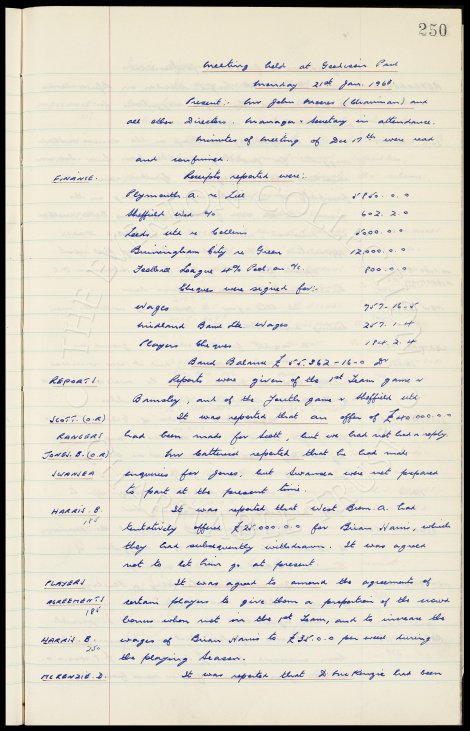 250
Meeting held at Goodison Park
Monday 21st Jan. 1963
Present:- Mr John Moores (Chairman) and
all other Directors. Manager & Secretary in attendance.
Minutes of Meeting of Dec 17th were read
and confirmed.
FINANCE. Receipts reported were:-
Plymouth A. re Lill 5850.0.0
Sheffield Wed % 602.2.0
Leeds Utd re Collins 5000.0.0
Birmingham City re Green 12,000.0.0
Football League 4% Pool on a/c. 800.0.0
Cheques were signed for:-
Wages 757-16-5
Midland Bank Ltd Wages 257.1.4
Players Cheques 184.2.4
Bank Balance £55.362-16-0 Dr
REPORTS Reports were given of the 1st Team game v
Barnsley, and of the Youth game v Sheffield Utd
SCOTT. (O.R) It was reported that an offer of £40.000.0.0
RANGERS had been made for Scott, but we had not had a reply
JONES. B. (O.R) Mr Catterick reported that he had made
SWANSEA enquiries for Jones, but Swansea were not prepared
to part at the present time.
HARRIS. B. It was reported that West Brom. A. had
185 tentatively offered £25.000.0.0 for Brian Harris, which
they had subsequently withdrawn. It was agreed
not to let him go at present
PLAYERS It was agreed to amend the agreements of
AGREEMENTS certain players to give them a proportion of the crowd
185 bonus when not in the 1st Team, and to increase the
HARRIS. B. wages of Brian Harris to £35.0.0 per week during
250 the playing season.
MCKENZIE. D. It was reported that D. McKenzie had been